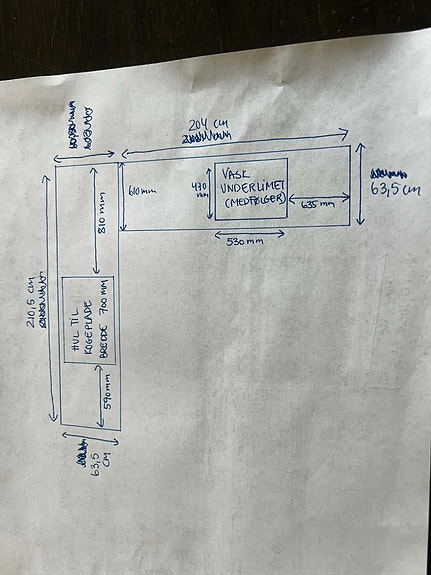 204 cm
610 mm
470 mm
VASK
UNDERLIMET
(MEDFØLGER)
635 mm
63,5 cm
530 mm
810 mm
210,5 cm
HUL TIL
KOGEPLADE
BREDDE 700 mm
590 mm
63,5
cm